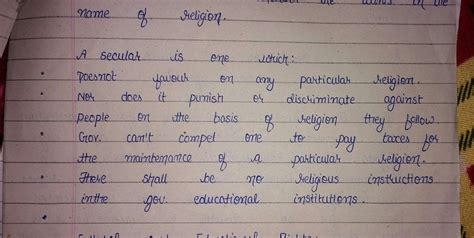 the words in the
name of religion.
A secular is one which:
• Doesnot favour on any particular religion.
• Nor does it punish or discriminate against
people on the basis of religion they follow.
• Gov. can't compel one to pay taxes for
the maintenance of a particular religion.
• There shall be no religious instructions
inthe gov. educational institutions.